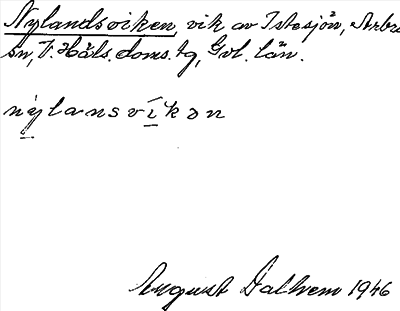 Nylandsviken, vik av Istesjön, Arbrå
sn, V. Häls. doms. tg, Gvl. län.
nylansvíkɘn
August Dalhem 1946